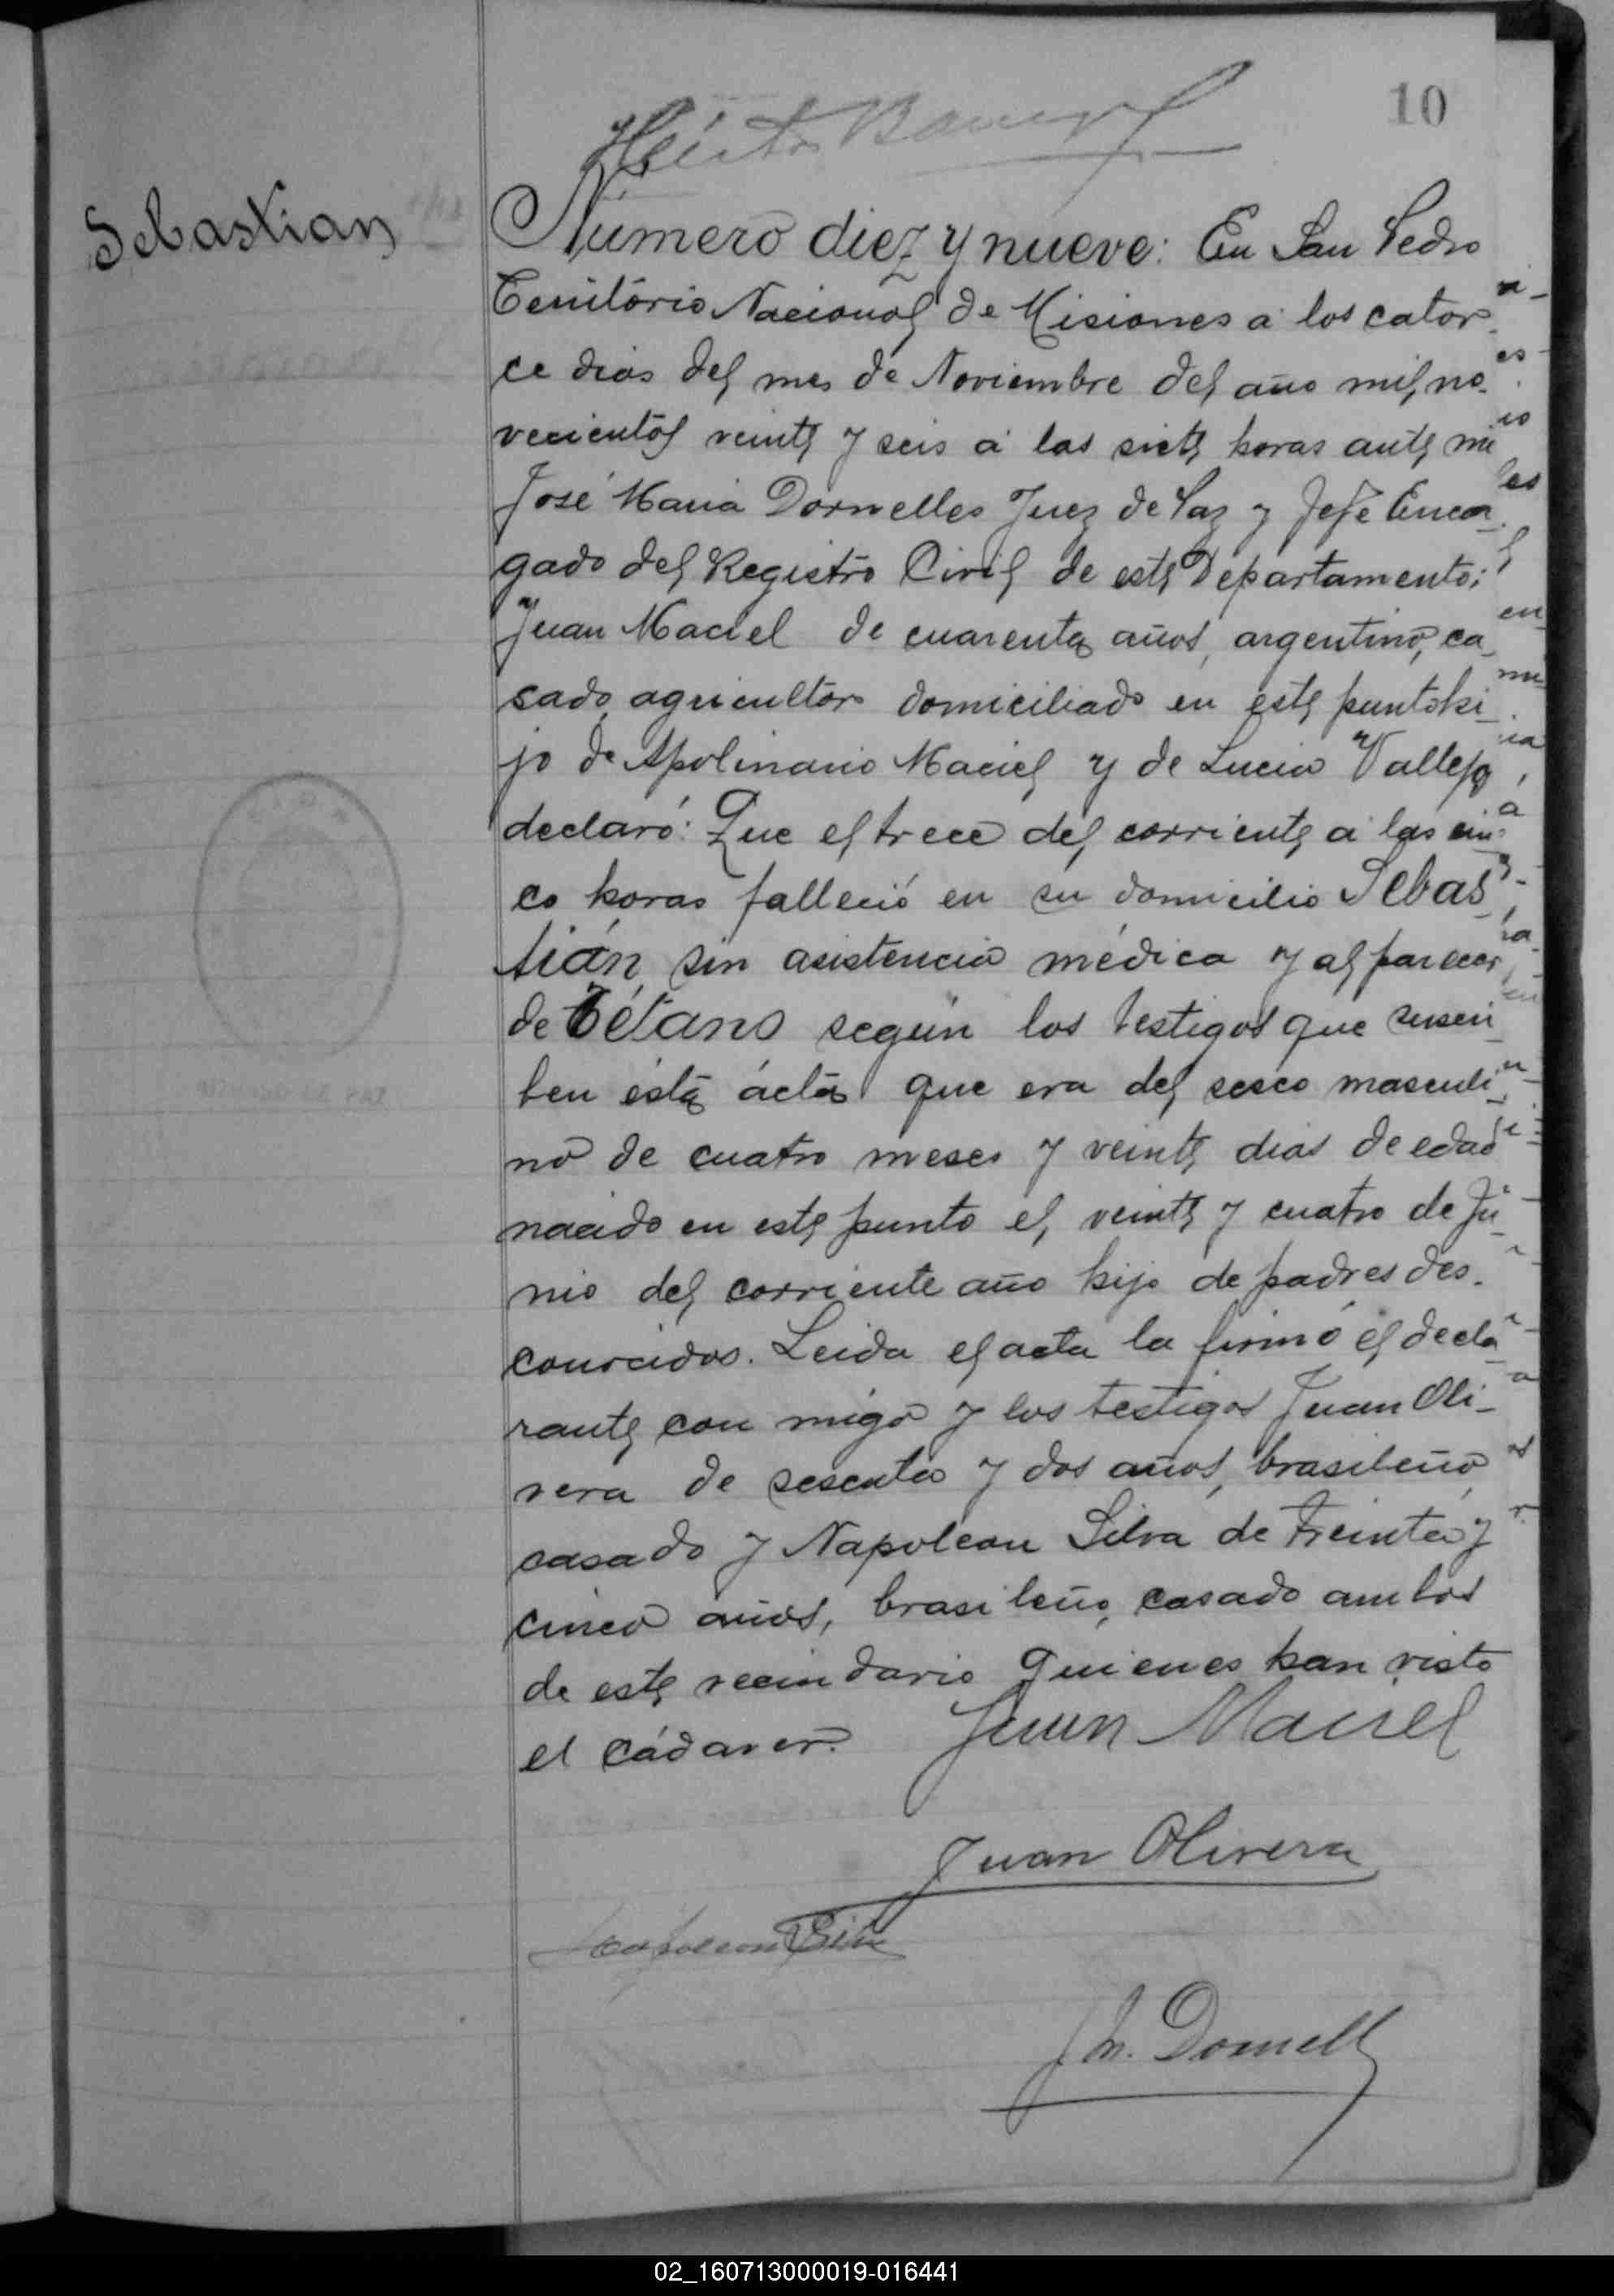 10
Sebastian
Número diez y nueve: En San Pedro
Território Nacional de Misiones a los cator
ce dias del mes de Noviembre del año mil, no
vecientos veinte y seis a las siete horas ante mi
José Maria Dornelles Juez de Paz y Jefe Encar
gado del Registro Civil de este Departamento;
Juan Maciel de cuarenta años, argentino, ca
sado, agricultor domiciliado en este punto hi
jo de Apolinario Maciel y de Lucia Vallejo
declaró: Que el trece del corriente a las cin
co horas falleció en su domicilio Sebas
tián, sin asistencia médica y al parecer
de Tétano según los testigos que suscri
ben ésta ácta que era del secso masculi
no de cuatro meses y veinte dias de edad
nacido en este punto el veinte y cuatro de Ju
nio del corriente año hijo de padres des.
conocidos. Leida el acta la firmó el decla
rante con migo y los testigos Juan Oli-
vera de sesenta y dos años, brasileño,
casado y Napoleon Silva de treinta y
cinco años, brasileño, casado ambos
de este vecindario quienes han visto
el cádaver.
Juan Maciel
Juan Olivera
Napoleon Silva
J M. Dornell
02_160713000019-016441